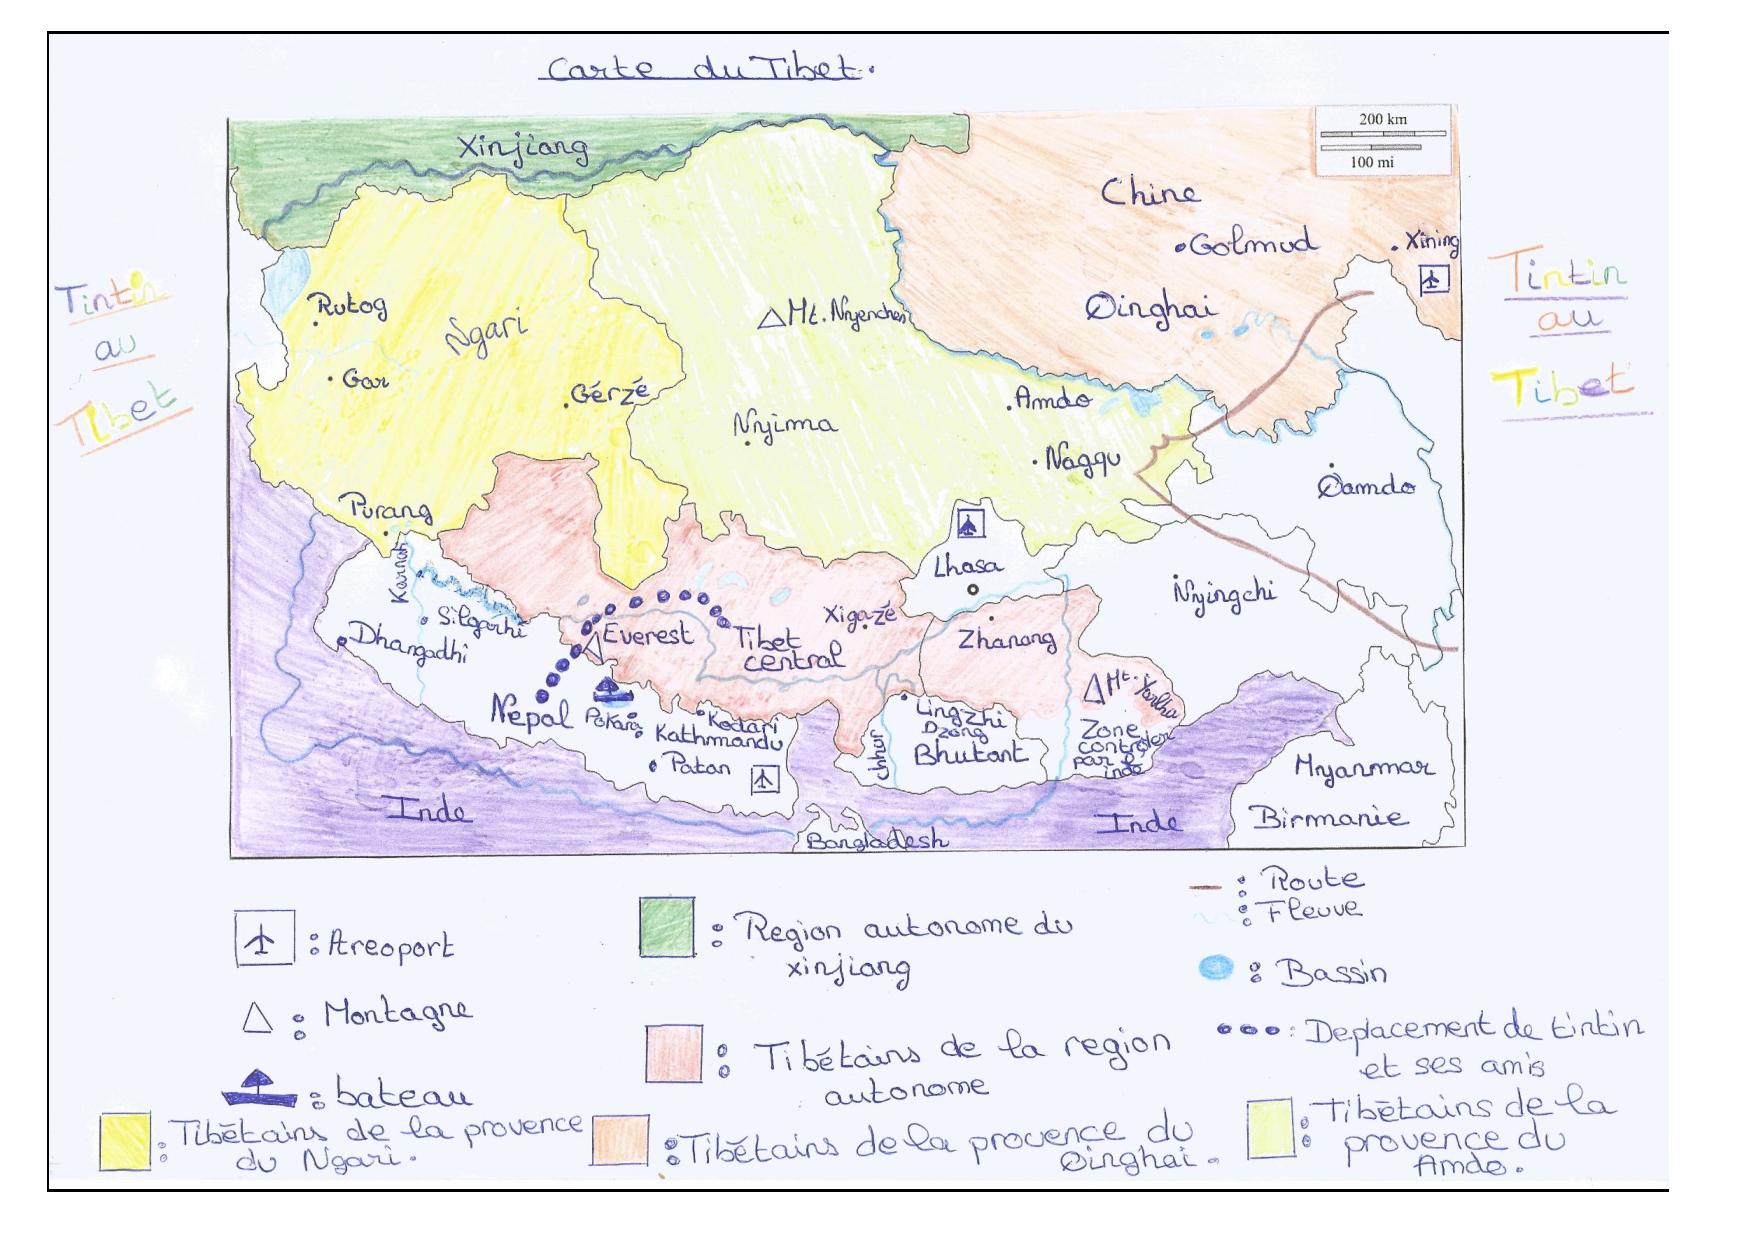 Carte du Tibet.
200 km
100 mi
Xinjiang
Chine
Golmud
Xining
Tintin
au
Tibet
Tintin
au
Tibet
Rutog
Ngari
Mt. Nyenchen
Qinghai
Gar
Gérzé
Amdo
Nyima
Nagqu
Qamdo
Purang
Karnali
Lhasa
Nyingchi
Silgarhi
Dhangadhi
Everest
Tibet
central
Xigazé
Zhanang
Nepal
Mt. Yarlha
Kodari
Kathmandu
Patan
Lingzhi
Dzong
Bhutant
chhur
Zone
controler
par l'
inde
Myanmar
Birmanie
Inde
Inde
Bangladesh
: Areoport
: Montagne
: bateau
: Tibétains de la provence
du Ngari.
: Region autonome du
xinjiang
: Tibétains de la region
autonome
: Tibétains de la provence du
Qinghai.
: Route
: Fleuve
: Bassin
: Deplacement de tintin
et ses amis
: Tibétains de la
provence du
Amdo.